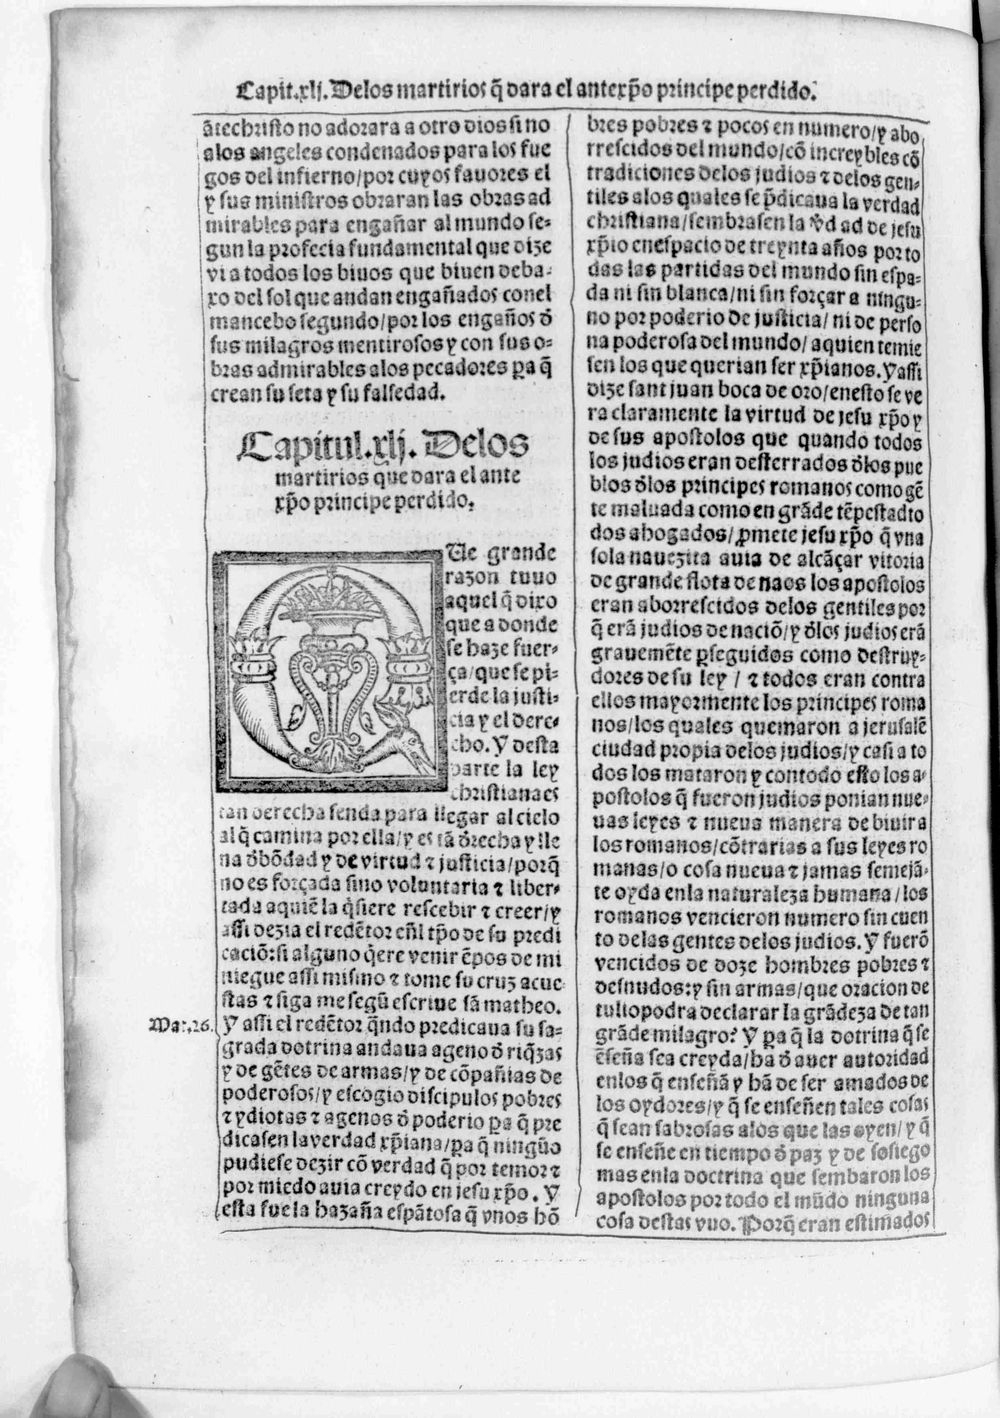 Capit.xlj. Delos martirios q̃ dara el antexp̃o principe perdido.
ãtechristo no adorara a otro dios si no
alos angeles condenados para los fue
gos del infierno/por cuyos fauores el
y sus ministros obraran las obras ad
mirables para engañar al mundo se-
gun la profecia fundamental que dize
vi a todos los biuos que biuen deba-
xo del sol que andan engañados conel
mancebo segundo/por los engaños d̃
sus milagros mentirosos y con sus o-
bras admirables alos pecadores p̱a q̃
crean su seta y su falsedad.
Capitul.xlj. Delos
martirios que dara el ante
xp̃o principe perdido.
QUe grande
razon tuuo
aquel q̃ dixo
que a donde
se haze fuer-
ça/que se pi-
erde la justi-
cia y el dere-
cho. Y desta
parte la ley
christiana es
tan derecha senda para llegar al cielo
al q̃ camina por ella/y es tã d̃recha y lle
na d̃ bõdad y de virtud ⁊ justicia/porq̃
no es forçada sino voluntaria ⁊ liber-
tada aquiẽ la q̃siere rescebir ⁊ creer/y
assi dezia el redẽtor eñl tp̃o de su predi
caciõ:si alguno q̃ere venir ẽpos de mi
niegue assi mismo ⁊ tome su cruz acue
stas ⁊ siga me segũ escriue sã matheo.
Mat.26.
Y assi el redẽtor q̃ndo predicaua su sa-
grada dotrina andaua ageno d̃ riq̃zas
y de gẽtes de armas/y de cõpañias de
poderosos/y escogio discipulos pobres
⁊ ydiotas ⁊ agenos d̃ poderio p̱a q̃ pre
dicasen la verdad xp̃iana/p̱a q̃ ningũo
pudiese dezir cõ verdad q̃ por temor ⁊
por miedo auia creydo en jesu xp̃o. Y
esta fue la hazaña espãtosa q̃ vnos hõ
bres pobres ⁊ pocos en numero/y abo
rrescidos del mundo/cõ increybles cõ
tradiciones delos judios ⁊ delos gen-
tiles alos quales se p̃dicaua la verdad
christiana/sembrasen la ṽdad de jesu
xp̃io en espacio de treynta años por to
das las partidas del mundo sin espa-
da ni sin blanca/ni sin forçar a ningu-
no por poderio de justicia/ni de perso
na poderosa del mundo/aquien temie
sen los que querian ser xp̃ianos. Y assi
dize sant juan boca de oro/enesto se ve
ra claramente la virtud de jesu xp̃o y
de sus apostolos que quando todos
los judios eran desterrados d̃los pue
blos d̃los principes romanos como gẽ
te maluada como en grãde tẽpestad to
dos abogados/p̱mete jesu xp̃o q̃ vna
sola nauezita auia de alcãçar vitoria
de grande flota de naos los apostolos
eran aborrescidos delos gentiles por
q̃ erã judios de naciõ/y d̃los judios erã
grauemẽte p̱seguidos como destruy-
dores de su ley / ⁊ todos eran contra
ellos mayormente los principes roma
nos/los quales quemaron a jerusalẽ
ciudad propia delos judios/y casi a to
dos los mataron y con todo esto los a-
postolos q̃ fueron judios ponian nue-
uas leyes ⁊ nueua manera de biuir a
los romanos/cõtrarias a sus leyes ro
manas/o cosa nueua ⁊ jamas semejã-
te oyda enla naturaleza humana/los
romanos vencieron numero sin cuen
to delas gentes delos judios. Y fuerõ
vencidos de doze hombres pobres ⁊
desnudos:y sin armas/que oracion de
tulio podra declarar la grãdeza de tan
grãde milagro? Y p̱a q̃ la dotrina q̃ se
ẽseña sea creyda/ha d̃ auer autoridad
enlos q̃ enseñã y hã de ser amados de
los oydores/y q̃ se enseñen tales cosas
q̃ sean sabrosas alos que las oyen/y q̃
se enseñe en tiempo d̃ paz y de sosiego
mas enla doctrina que sembaron los
apostolos por todo el mũdo ninguna
cosa destas vuo. Porq̃ eran estimados